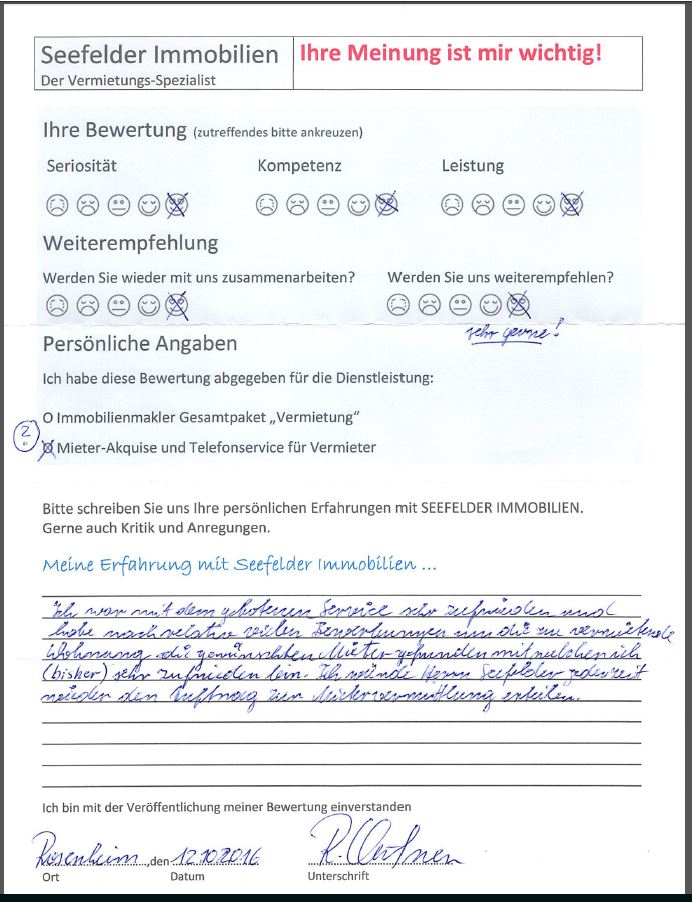 Seefelder Immobilien
Der Vermietungs-Spezialist
Ihre Meinung ist mir wichtig!
Ihre Bewertung (zutreffendes bitte ankreuzen)
Seriosität Kompetenz Leistung
Weiterempfehlung
Werden Sie wieder mit uns zusammenarbeiten? Werden Sie uns weiterempfehlen?
sehr gerne!
Persönliche Angaben
Ich habe diese Bewertung abgegeben für die Dienstleistung:
O Immobilienmakler Gesamtpaket „Vermietung“
2. O Mieter-Akquise und Telefonservice für Vermieter
Bitte schreiben Sie uns Ihre persönlichen Erfahrungen mit SEEFELDER IMMOBILIEN.
Gerne auch Kritik und Anregungen.
Meine Erfahrung mit Seefelder Immobilien ...
Ich war mit dem gebotenen Service sehr zufrieden und
habe nach relativ vielen Bewerbungen um die zu vermietende
Wohnung die gewünschten Mieter gefunden mit welchen ich
(bisher) sehr zufrieden bin. Ich würde Herrn Seefelder jederzeit
wieder den Auftrag zur Mietervermittlung erteilen.
Ich bin mit der Veröffentlichung meiner Bewertung einverstanden
Rosenheim, den 12.10.2016
Ort Datum Unterschrift